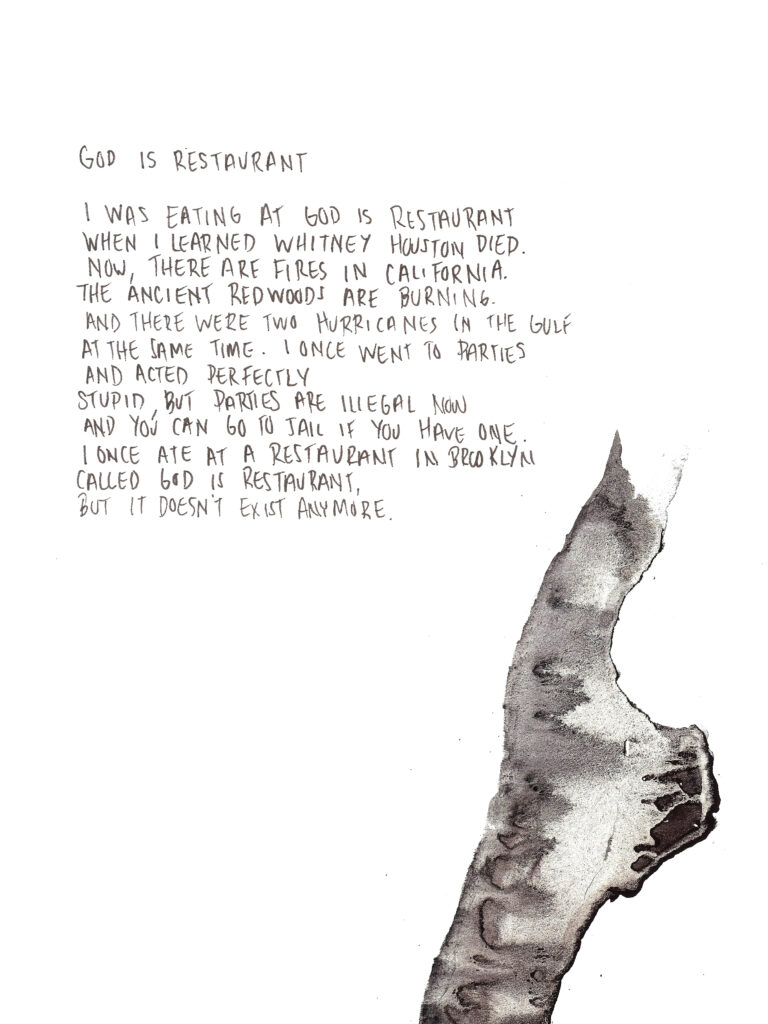 GOD IS RESTAURANT
I WAS EATING AT GOD IS RESTAURANT
WHEN I LEARNED WHITNEY HOUSTON DIED.
NOW, THERE ARE FIRES IN CALIFORNIA.
THE ANCIENT REDWOODS ARE BURNING.
AND THERE WERE TWO HURRICANES IN THE GULF
AT THE SAME TIME. I ONCE WENT TO PARTIES
AND ACTED PERFECTLY
STUPID, BUT PARTIES ARE ILLEGAL NOW
AND YOU CAN GO TO JAIL IF YOU HAVE ONE.
I ONCE ATE AT A RESTAURANT IN BROOKLYN
CALLED GOD IS RESTAURANT,
BUT IT DOESN'T EXIST ANYMORE.